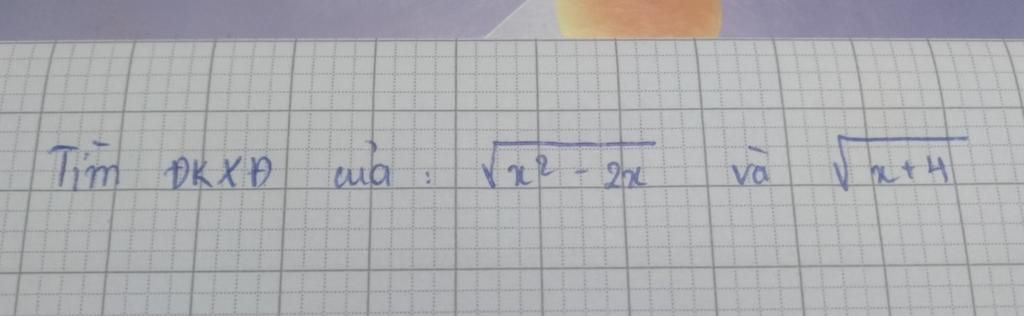 Tìm ĐKXĐ của : √x² - 2x và √x + 4